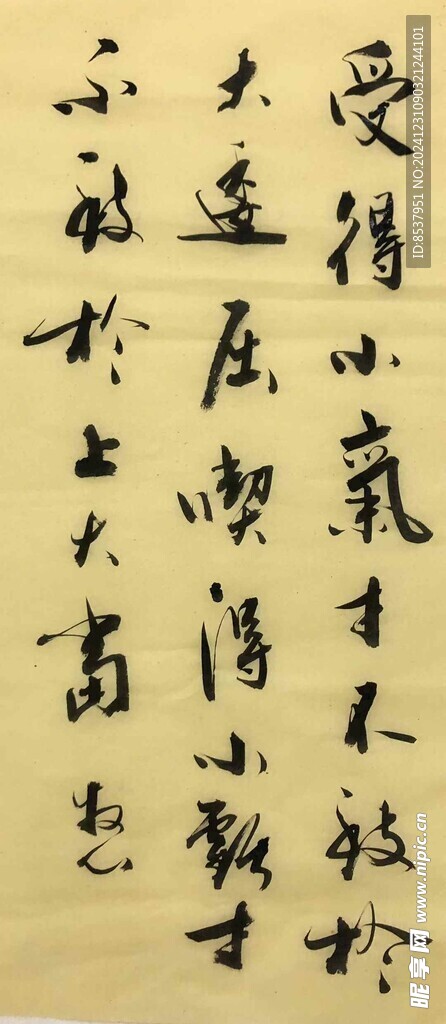 受得小氣才不致於
大逶屈喫得小虧才
不致於上大當
ID:8537951 NO:20241231090321244101
昵享网 www.nipic.cn